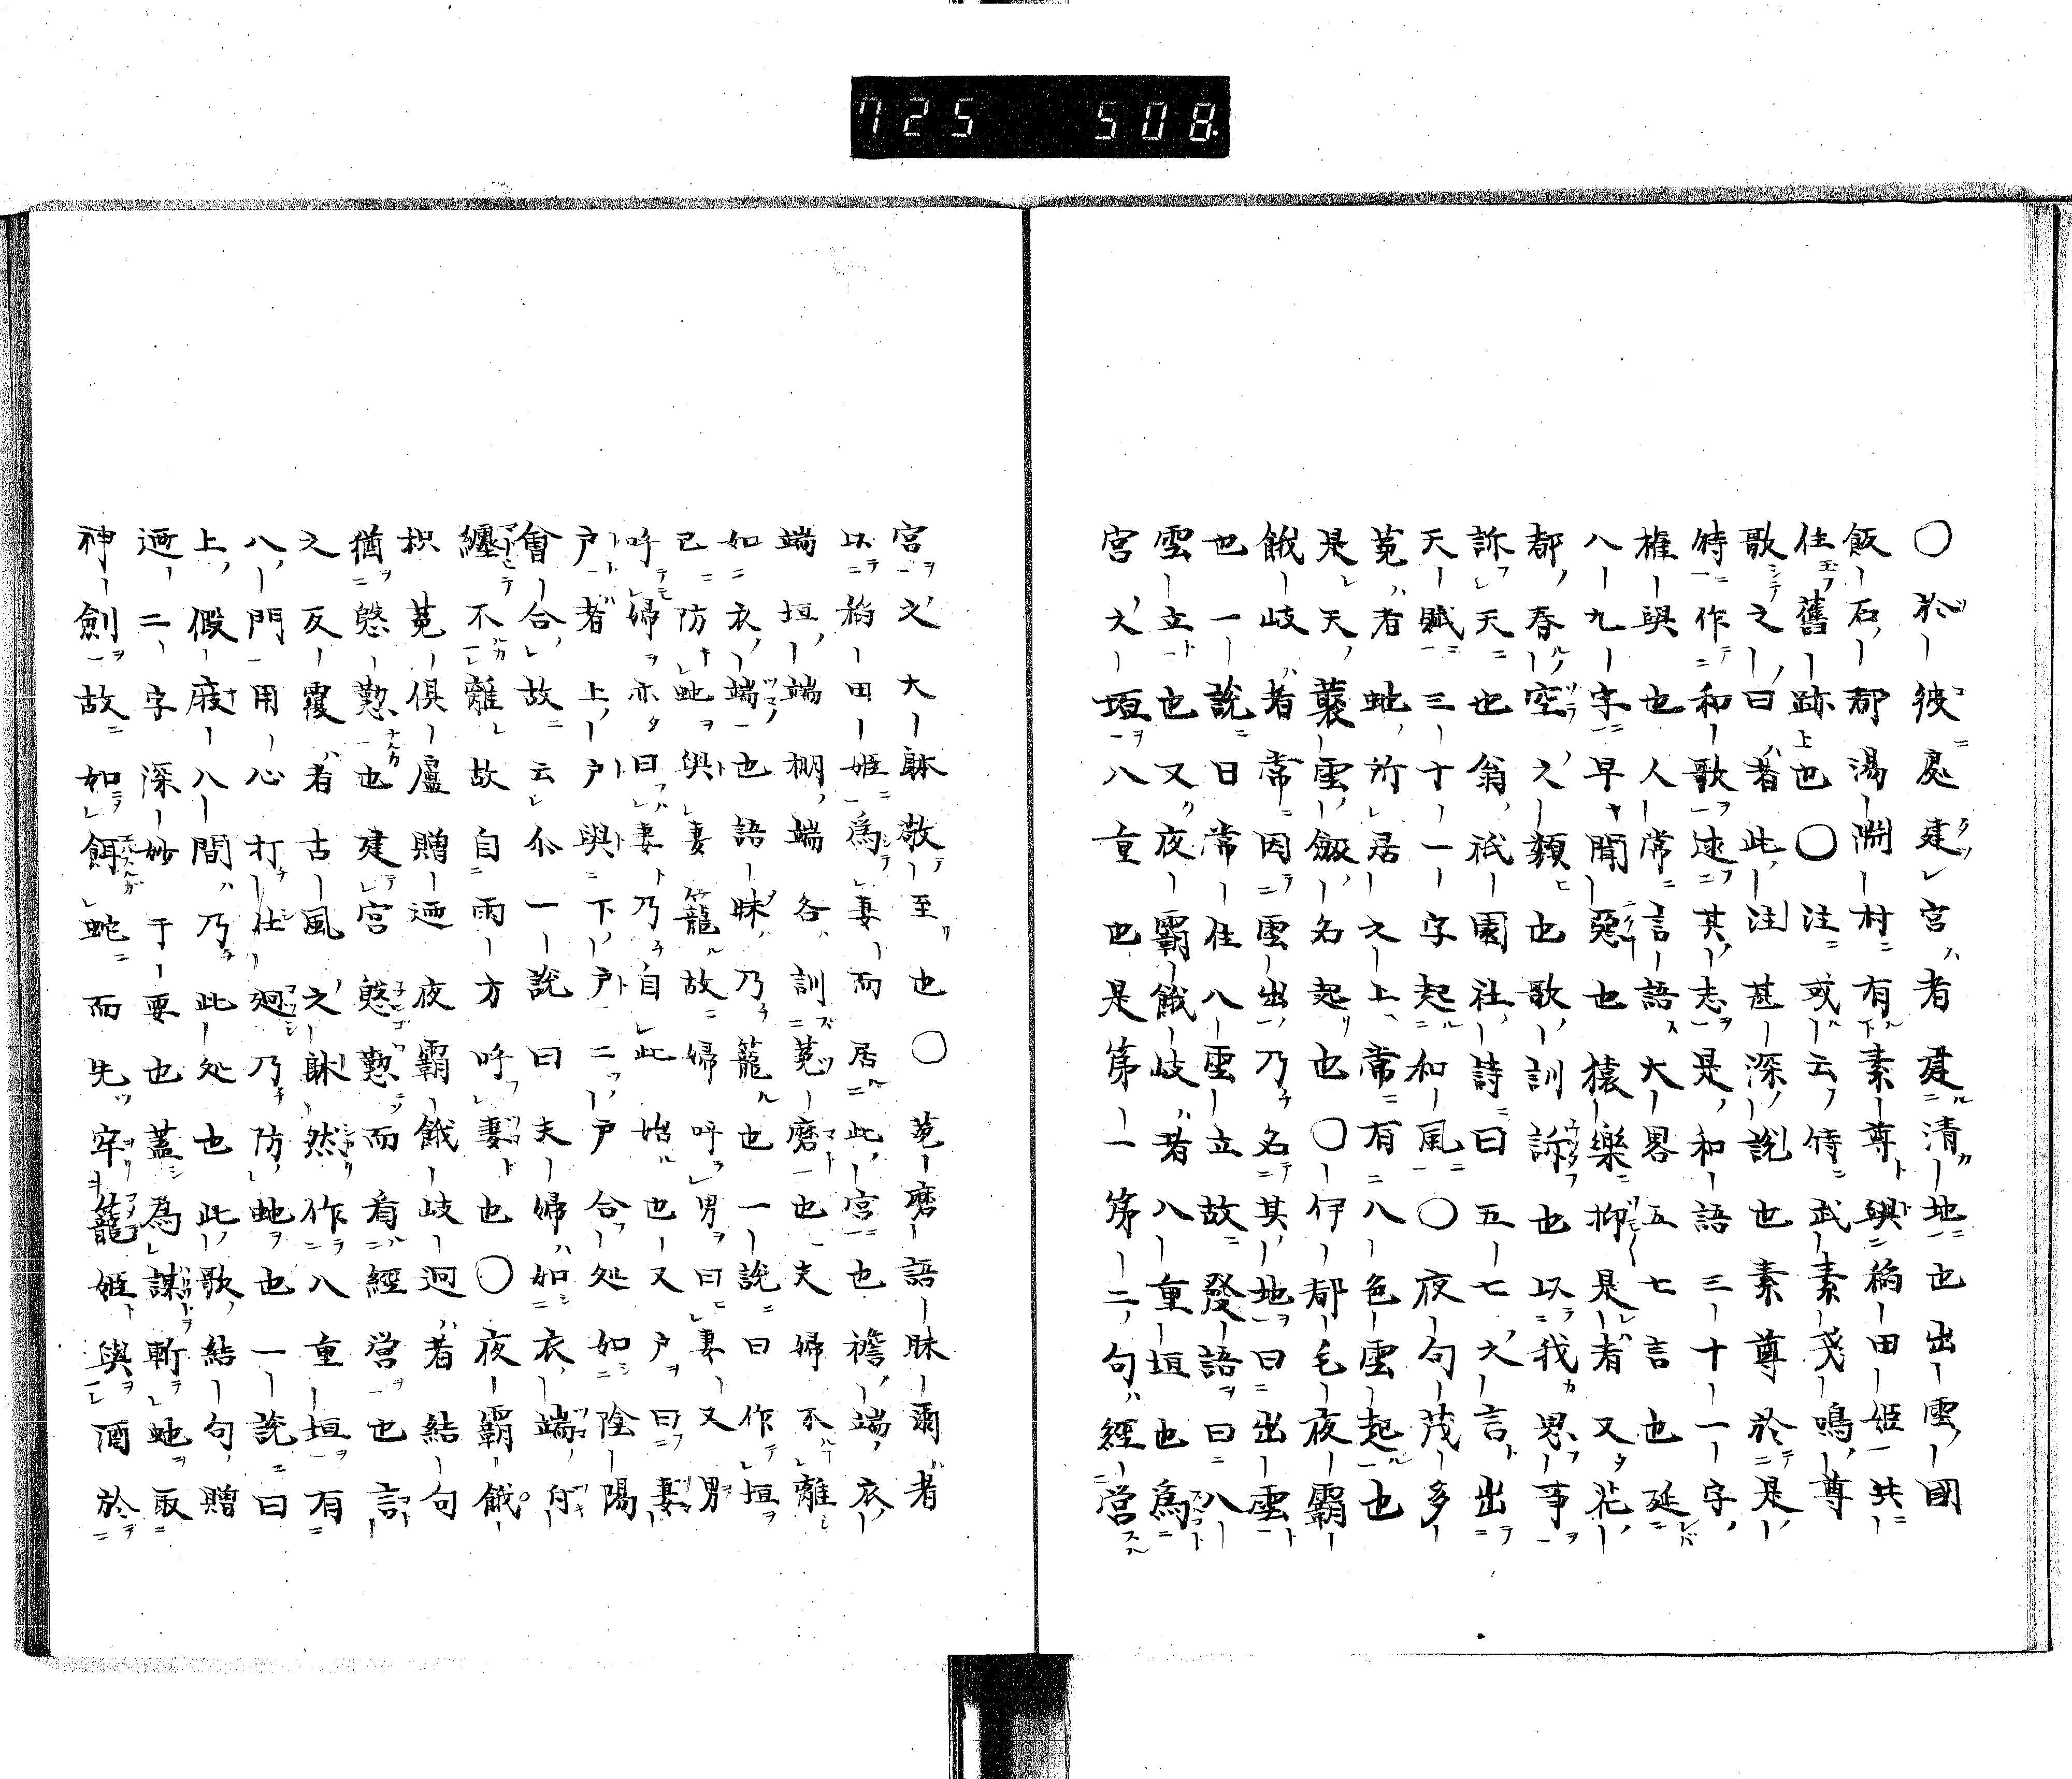 725 508.
〇於彼処建宮者建清地也出雲国
飯石郡湯渕村有素尊与稲田姫共
住舊跡也〇注或云侍武素戔嗚尊
歌之曰者此注甚深説也素尊於是
特作和歌述其志是和語三十一字
権与也人常言語大畧五七言也延
八九字早聞悪也猿楽抑是者又花
都春空之類也歌訓訴也以我思事
訴天也翁祇園社詩曰五七之言出
天賦三十一字起和風〇夜句茂多
菟者虵所居之上常有八色雲起也
是天叢雲劔名起也〇伊都毛夜霸
餓岐者常因雲出乃名其地曰出雲
也一説曰常住八雲立故發語曰八
雲立也又夜霸餓岐者八重垣也為
宮之垣八重也是第一第二句經営
宮之大躰敬至也〇菟磨語昧爾者
以稲田姫為妻而居此宮也襜端衣
端垣端棚端各訓菟磨也夫婦不離
如衣端也語昧乃籠也一説曰作垣
己防虵与妻籠故婦呼男曰妻又男
呼婦亦曰妻乃自此始也又戸曰妻
戸者上戸与下戸二戸合処如陰陽
會合故云尒一説曰夫婦如衣端付
纏不離故自両方呼妻也〇夜霸餓
枳菟倶盧贈廼夜霸餓岐廻者結句
猶慇懃也建宮慇懃而看經営也言
之反覆者古風之躰然作八重垣有
八門用心打仕廻乃防虵也一説曰
上假庪八間乃此処也此歌結句贈
廼二字深妙于要也蓋為謀斬虵取
神剣故如餌蛇而先牢籠姫与酒於